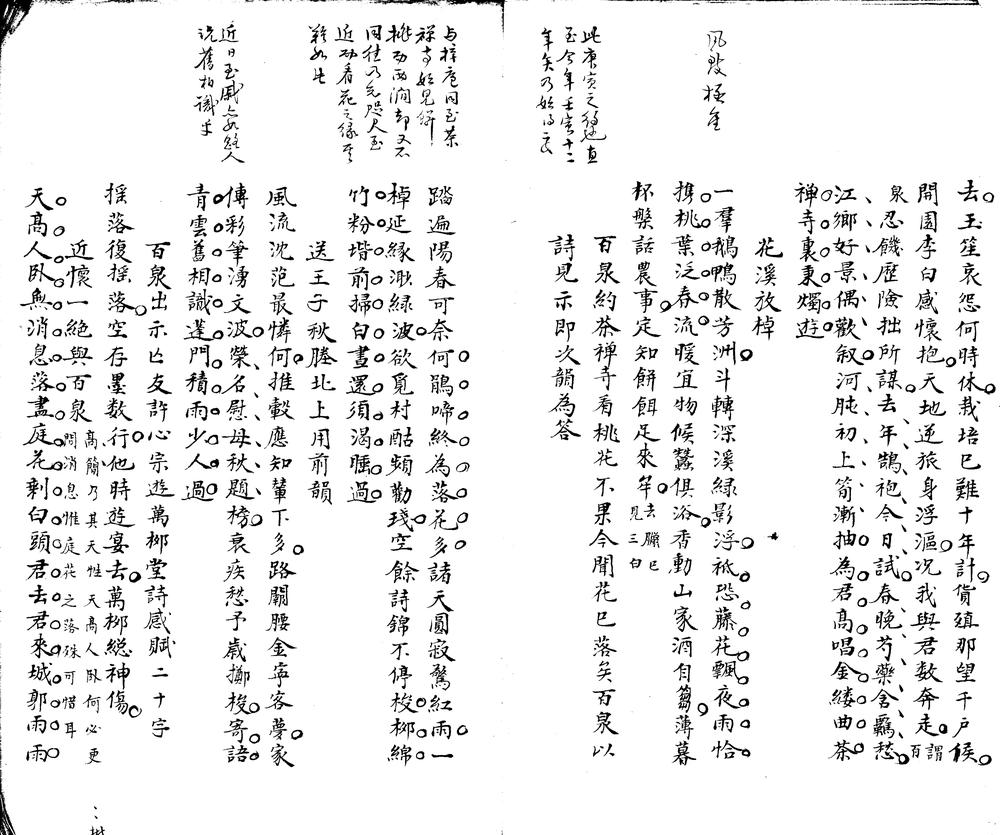 去玉笙哀怨何時休栽培已難十年計貨殖那望千戶侯
開園李白感懷抱天地逆旅身浮漚况我與君數奔走謂百
泉忍饑歷險拙所謀去年鵠袍今日試春晚芍藥含羈愁
江鄉好景偶歡叙河肫初上筍漸抽為君高唱金縷曲茶
禪寺裏東燭遊
花溪放棹
一羣鵝鴨散芳洲斗轉深溪綠影浮祇恐藤花飄夜雨恰
携桃葉泛春流暖宜物候蠶俱浴香動山家酒自篘薄暮
杯槃話農事定知餅餌足來年去臘已見三白
百泉約茶禪寺看桃花不果今開花已落矣百泉以
詩見示即次韻為答
踏遍陽春可奈何鵑啼終為落花多諸天圓寂驚紅雨一
棹延緣漱綠波欲覓村酤頻勸琖空餘詩錦不停梭柳綿
竹粉堦前掃白晝還須渴睡過
送王子秋塍北上用前韻
風流沈范最憐何推轂應知輦下多路關腰金寧客夢家
傳彩筆湧文波榮名慰母秋題榜衰疾愁予歲擲梭寄語
青雲舊相識蓬門積雨少人過
百泉出示亡友許心宗遊萬柳堂詩感賦二十字
摇落復摇落空存墨數行他時遊宴去萬柳總神傷
近懷一絕與百泉高簡乃其天性天高人卧何必更問消息惟庭花之落殊可惜耳
天高人卧無消息落盡庭花剩白頭君去君來城郭雨雨
風致極佳
此庚寅之
至今年壬寅十二
年矣乃始
與梓庵同至茶
禪寺始見餅
桃
同往乃
近功看花之緣
難如此
近日
洗舊相識